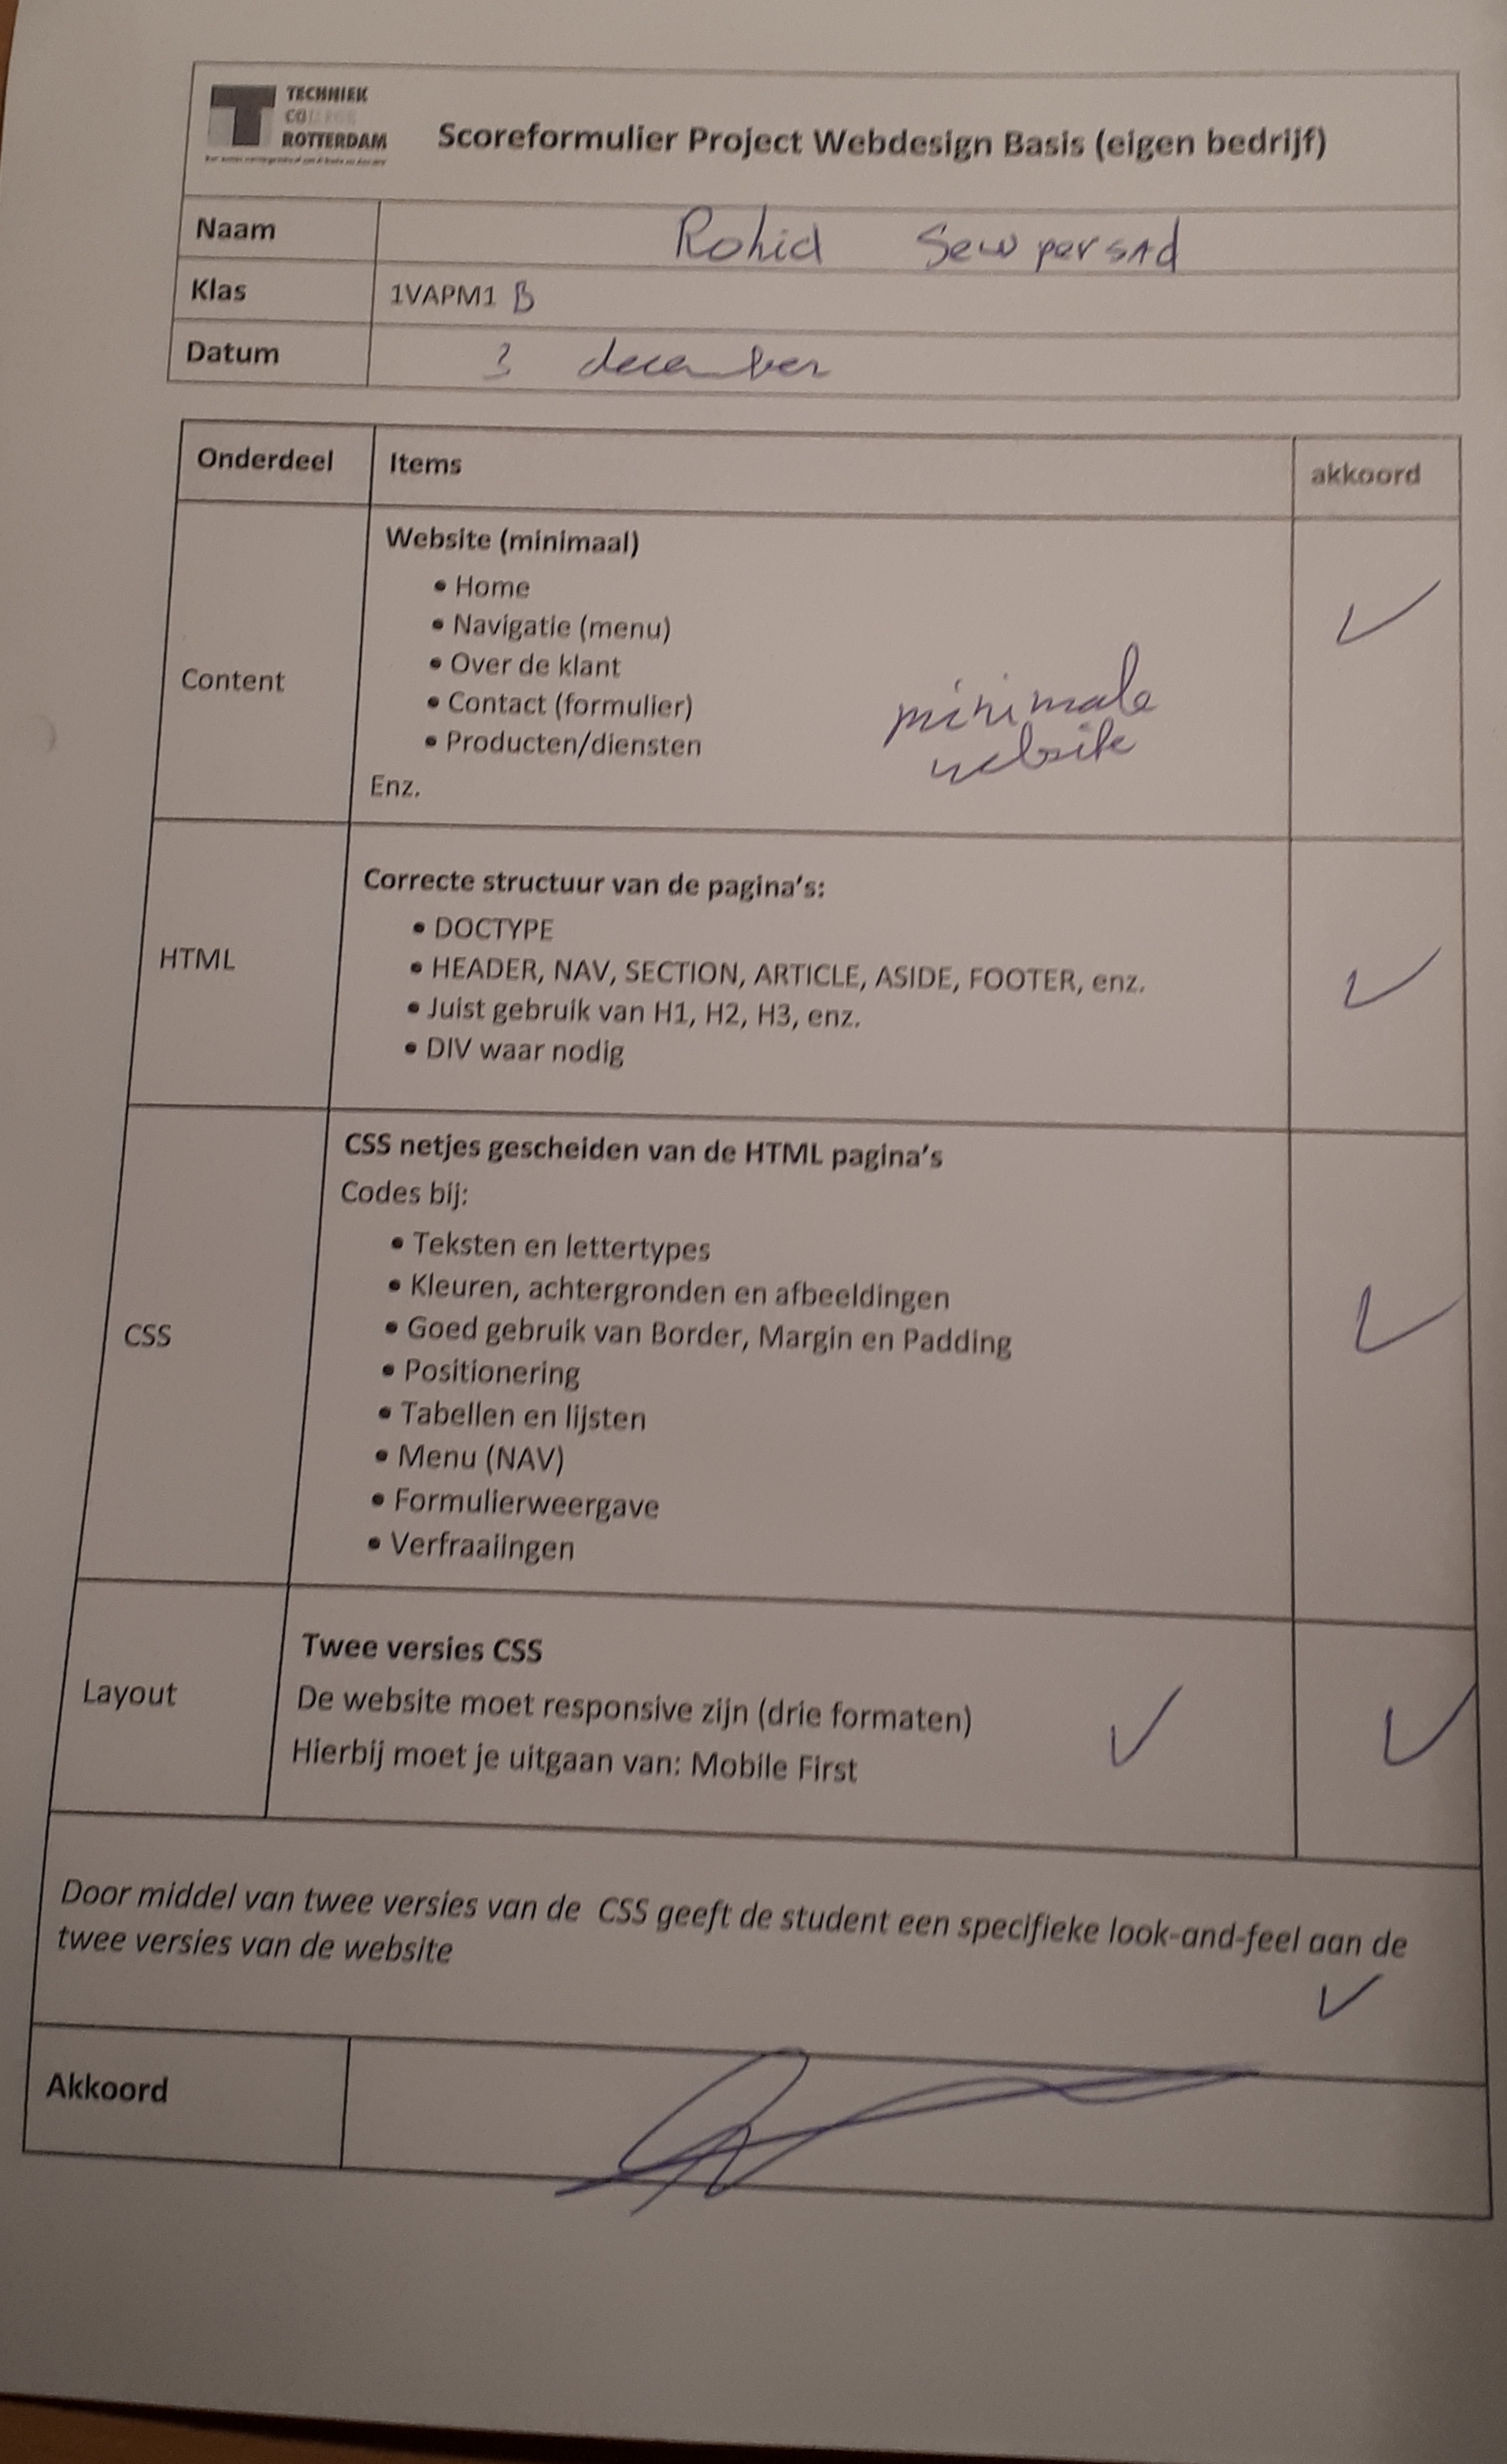 TECHNIEK
COLLEGE
ROTTERDAM
Scoreformulier Project Webdesign Basis (eigen bedrijf)
Naam Rohid Sewpersad
Klas 1VAPM1 B
Datum 3 december
Onderdeel Items akkoord
Website (minimaal)
• Home
• Navigatie (menu)
• Over de klant
Content
• Contact (formulier)
• Producten/diensten
minimale
website
Enz.
Correcte structuur van de pagina's:
• DOCTYPE
HTML
• HEADER, NAV, SECTION, ARTICLE, ASIDE, FOOTER, enz.
• Juist gebruik van H1, H2, H3, enz.
• DIV waar nodig
CSS netjes gescheiden van de HTML pagina's
Codes bij:
• Teksten en lettertypes
• Kleuren, achtergronden en afbeeldingen
CSS
• Goed gebruik van Border, Margin en Padding
• Positionering
• Tabellen en lijsten
• Menu (NAV)
• Formulierweergave
• Verfraaiingen
Twee versies CSS
Layout
De website moet responsive zijn (drie formaten)
Hierbij moet je uitgaan van: Mobile First
Door middel van twee versies van de CSS geeft de student een specifieke look-and-feel aan de
twee versies van de website
Akkoord